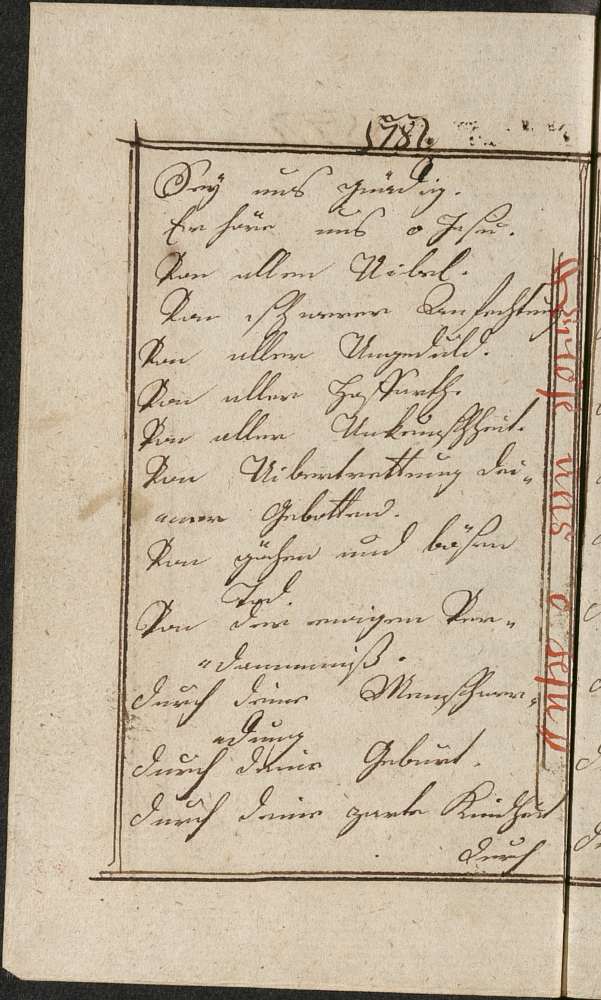 (78)
Sey uns gnädig.
Erhöre uns o Jesu.
Von allen Uibel.
Von schwerer Anfechtung
Von aller Ungeduld.
Von aller Hoffarth.
Von aller Unkeuschheit.
Von Uibertrettung dei-
ner Gebotten.
Von gähen und bösen
Tod.
Von der ewigen Ver-
dammniß.
Durch deine Menschwer-
dung
Durch deine Geburt.
Durch deine zarte Kindheit
Durch
uns o Jesu